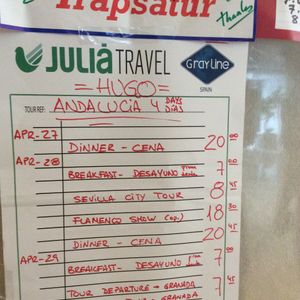 Trapsatur
thanks
JULIÀ TRAVEL
GrayLine
SPAIN
= HUGO =
TOUR REF: ANDALUCIA 4 DAYS DIAS
APR-27
DINNER - CENA 20 00
APR-28 BREAKFAST - DESAYUNO 7
SEVILLA CITY TOUR 8 45
FLAMENCO SHOW (op.) 18 30
DINNER - CENA 20 45
APR-29 BREAKFAST - DESAYUNO 7
TOUR DEPARTURE - GRANADA 7 45
GRANADA